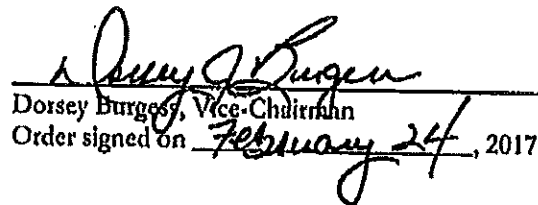 Dorsey J Burgess
Dorsey Burgess, Vice-Chairman
Order signed on February 24, 2017